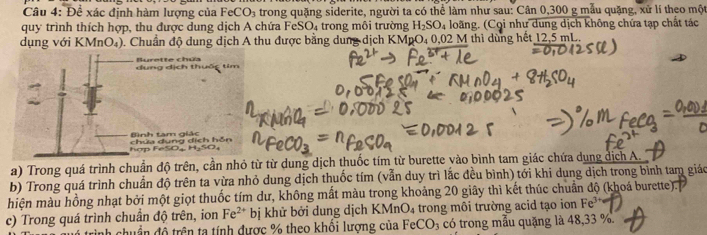 Câu 4: Để xác định hàm lượng của FeCO₃ trong quặng siderite, người ta có thể làm như sau: Cân 0,300 g mẫu quặng, xử lí theo một
quy trình thích hợp, thu được dung dịch A chứa FeSO₄ trong môi trường H₂SO₄ loãng. (Coi như dung dịch không chứa tạp chất tác
dụng với KMnO₄). Chuẩn độ dung dịch A thu được bằng dung dịch KMnO₄ 0,02 M thì dùng hết 12,5 mL.
=0,0125(l)
Fe²⁺ → Fe³⁺ + 1e
Burette chứa
dung dịch thuốc tím
5FeSO₄ + KMnO₄ + 8H₂SO₄
0,00125 ← 0,00025
n KMnO₄ = 0,00025
Bình tam giác
chứa dung dịch hỗn
hợp FeSO₄, H₂SO₄
n FeCO₃ = n FeSO₄ = 0,00125
=> %m FeCO₃ =
Fe²⁺
a) Trong quá trình chuẩn độ trên, cần nhỏ từ từ dung dịch thuốc tím từ burette vào bình tam giác chứa dung dịch A.
b) Trong quá trình chuẩn độ trên ta vừa nhỏ dung dịch thuốc tím (vẫn duy trì lắc đều bình) tới khi dung dịch trong bình tam giác
hiện màu hồng nhạt bởi một giọt thuốc tím dư, không mất màu trong khoảng 20 giây thì kết thúc chuẩn độ (khoá burette).
c) Trong quá trình chuẩn độ trên, ion Fe²⁺ bị khử bởi dung dịch KMnO₄ trong môi trường acid tạo ion Fe³⁺
quá trình chuẩn độ trên ta tính được % theo khối lượng của FeCO₃ có trong mẫu quặng là 48,33 %.